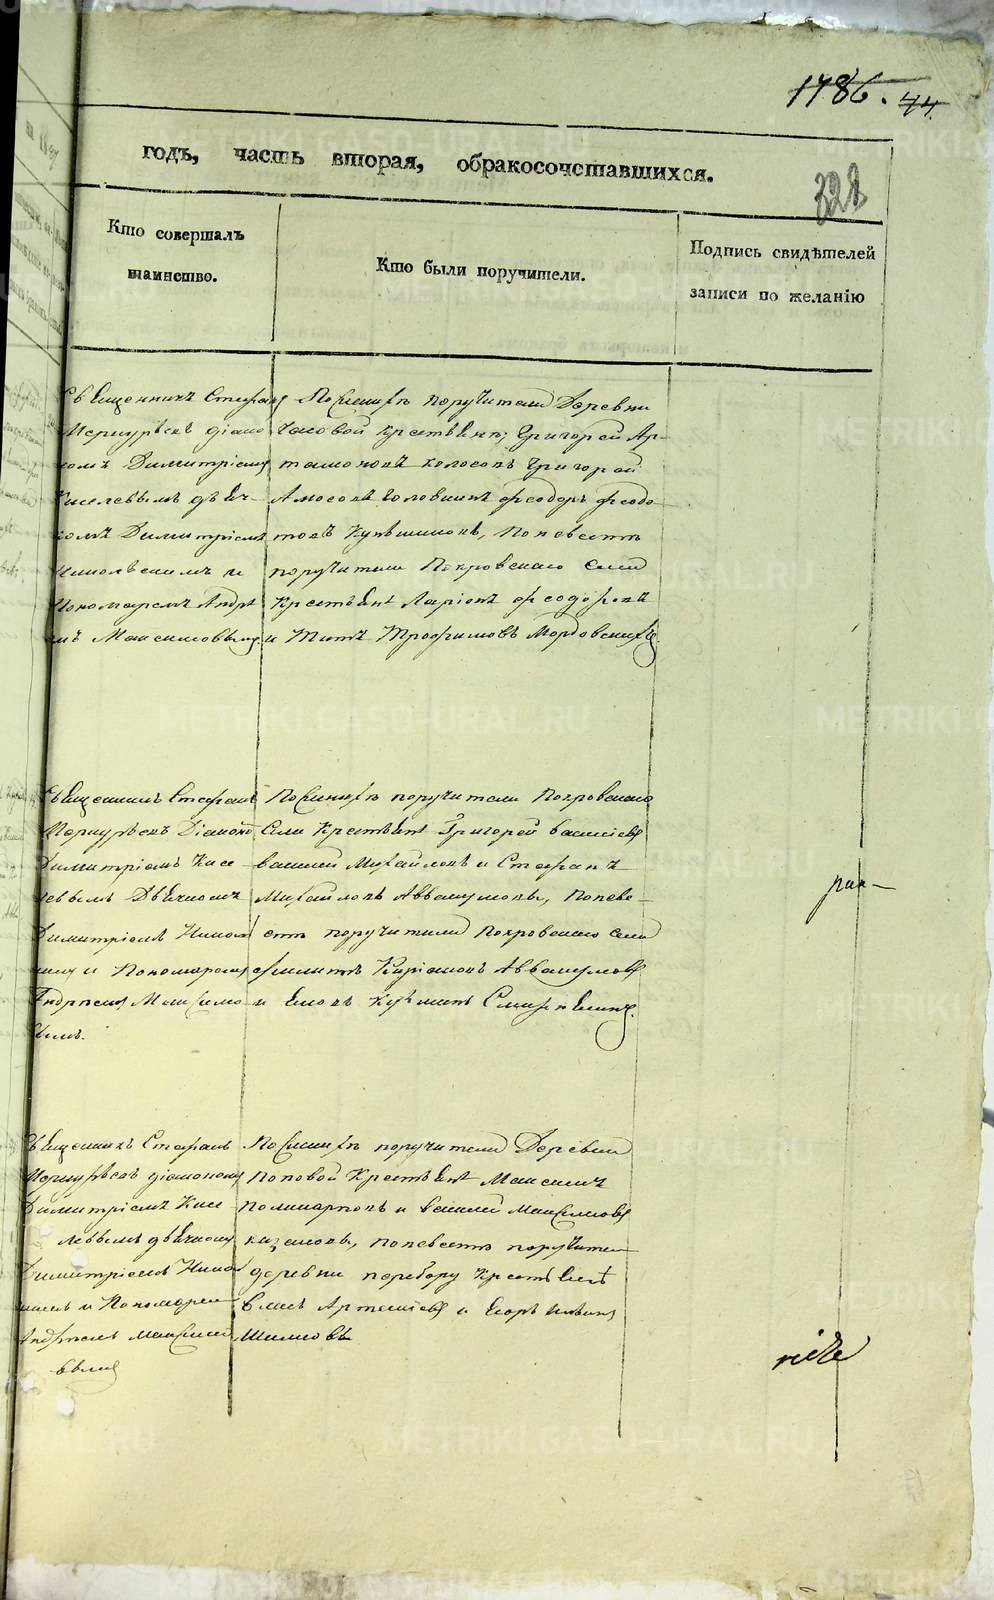 1786. 44.
годъ, часть вторая, обракосочетавшихся.
322
Кто совершалъ
таинство.
Кто были поручители.
Подпись свидѣтелей
записи по желанію
Священникъ Стефанъ
Меркурьевъ діако
номъ Димитріемъ
Киселевымъ дьяч-
комъ Димитріемъ
и
Пономаремъ Андре
емъ Максимовымъ
По женихѣ поручители Деревни
Часовой крестьяне; Григорей Ар-
тамоновъ Колосовъ Григорей
Амосовъ Головинъ Феодоръ Федо
товъ Кувшиновъ, По невестѣ
поручители Покровскаго села
Крестьяне Ларіонъ Феодоровъ
и Титъ Трофимовъ Мордовскихъ.
Священникъ Стефанъ
Меркурьевъ Діакономъ
Димитріемъ Кисе
левымъ Дьячкомъ
Димитріемъ Никол
и Пономаремъ
Андреемъ Максимо
вымъ.
По женихѣ поручители Покровскаго
Села Крестьяне Григорей Василіевъ
Василей Михайловъ и Стефанъ
Михайловъ Аввакумовы, По неве-
стѣ поручители Покровскаго села
Филипъ Киріаковъ Аввакумовъ
и
Священникъ Стефанъ
Меркурьевъ діакономъ
Димитріемъ Кисе
левымъ дьячкомъ
Димитріемъ Нико
и Пономаремъ
Андреемъ Максимо
вымъ
По женихѣ поручители Деревни
Поповой Крестьяне Максимъ
Поликарповъ и Василей Максимовъ
Казаковы, По невестѣ поручители
деревни перебору Крестьяне
Артемьевъ и Егоръ
METRIKI.GASO-URAL.RU